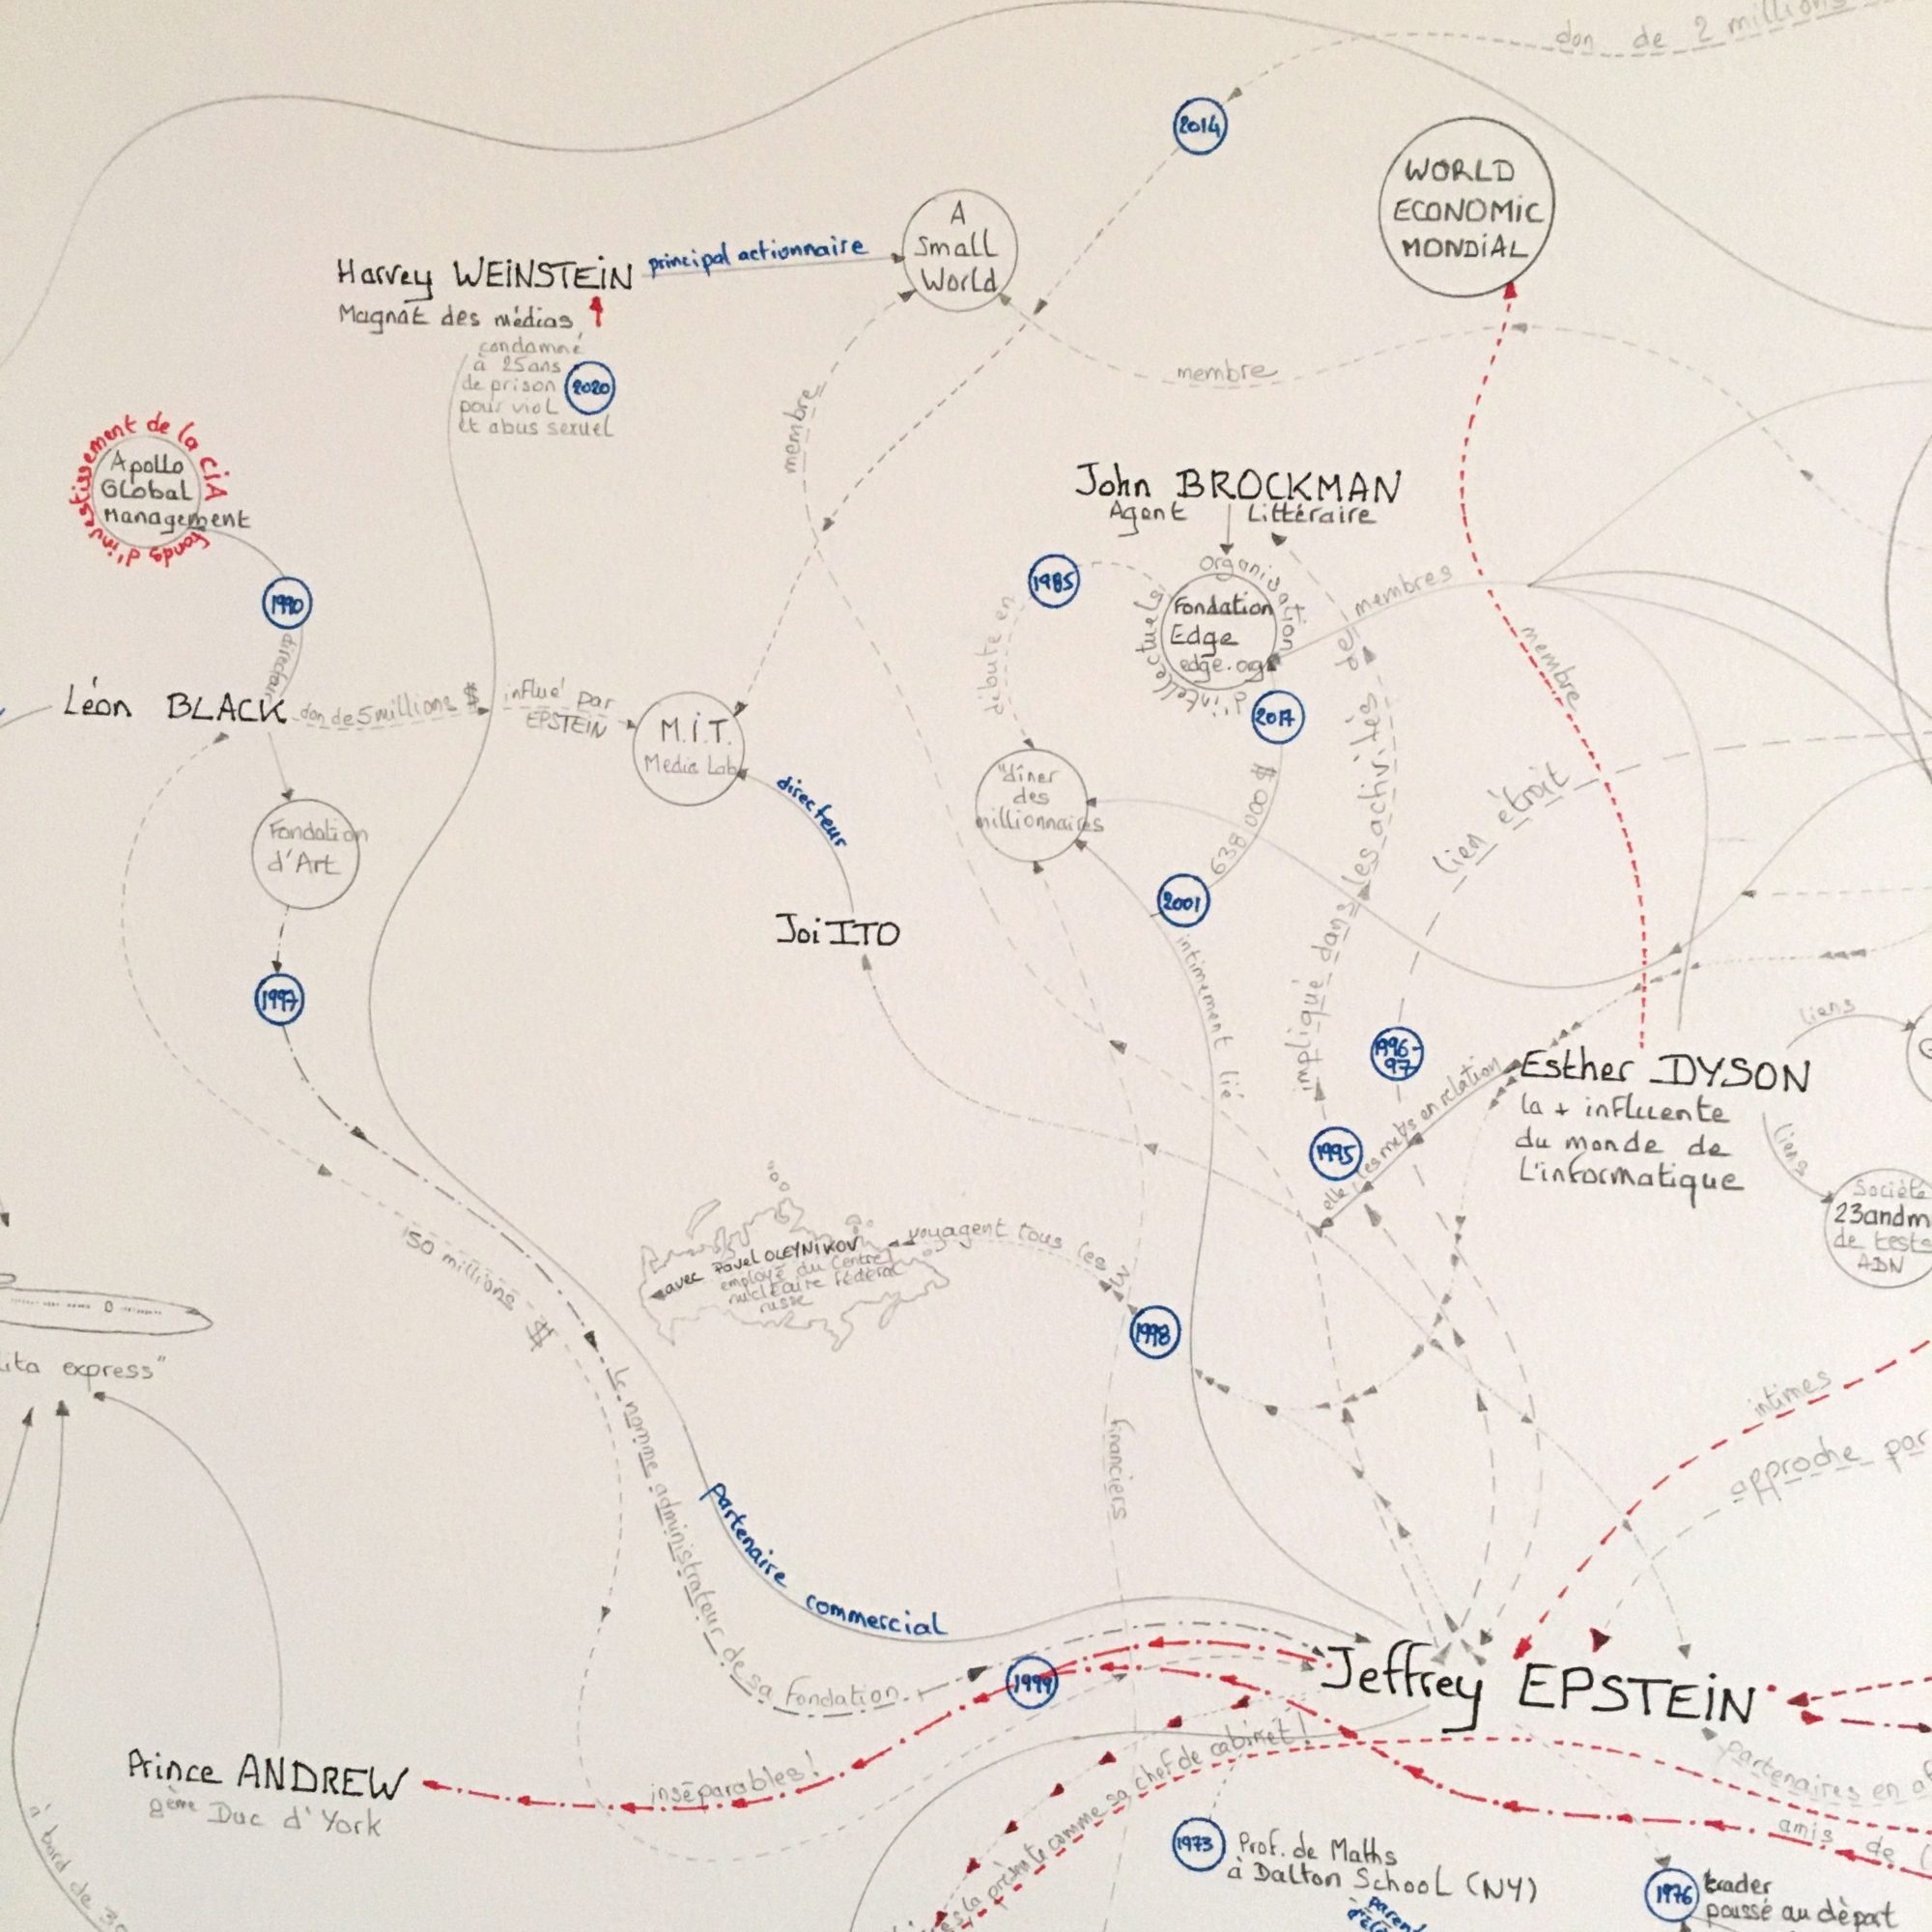 don de 2 millions
2014
WORLD
ECONOMIC
MONDIAL
A
Small
World
principal actionnaire
Harvey WEINSTEIN
Magnat des médias
condamné
à 25ans
de prison
pour viol
et abus sexuel
2020
membre
membre
fonds d'investissement de la CIA
Apollo
Global
Management
1990
directeur
Léon BLACK
don de 5 millions $
influé par
EPSTEIN
M.I.T.
Media Lab
directeur
Joi ITO
Fondation
d'Art
1997
John BROCKMAN
Agent Littéraire
1985
débute en
organisation
d'intellectuels
Fondation
Edge
edge.org
membres
2017
638 000 $
2001
"dîner
des
millionnaires
intimement lié
impliqué dans les activités de
lien étroit
membre
1996-
97
1995
elle les mets en relation
Esther DYSON
la + influente
du monde de
l'informatique
liens
liens
Société
23andm
de tests
ADN
150 millions $
avec Pavel OLEYNIKOV
employé du Centre
nucléaire Fédéral
russe
voyagent tous les 3
1998
financiers
lita express"
le nomme administrateur de sa Fondation
partenaire commercial
intimes
approche par
Jeffrey EPSTEIN
1999
inséparables!
Prince ANDREW
8ème Duc d'York
à bord de
la présente comme sa chef de cabinet!
1973
Prof. de Maths
à Dalton School (NY)
partenaires en
amis de
1976
trader
poussé au départ